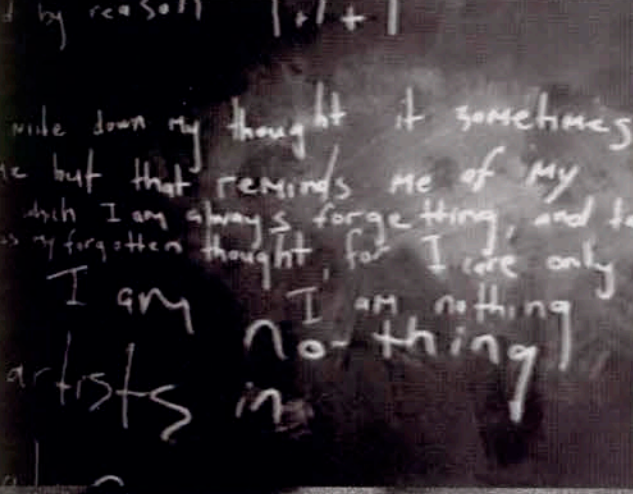 by reason 1+1+1
write down my thought it sometimes
me but that reminds me of my
which I am always forgetting, and to
as my forgotten thought, for I care only
I am I am nothing
no-thing
artists in